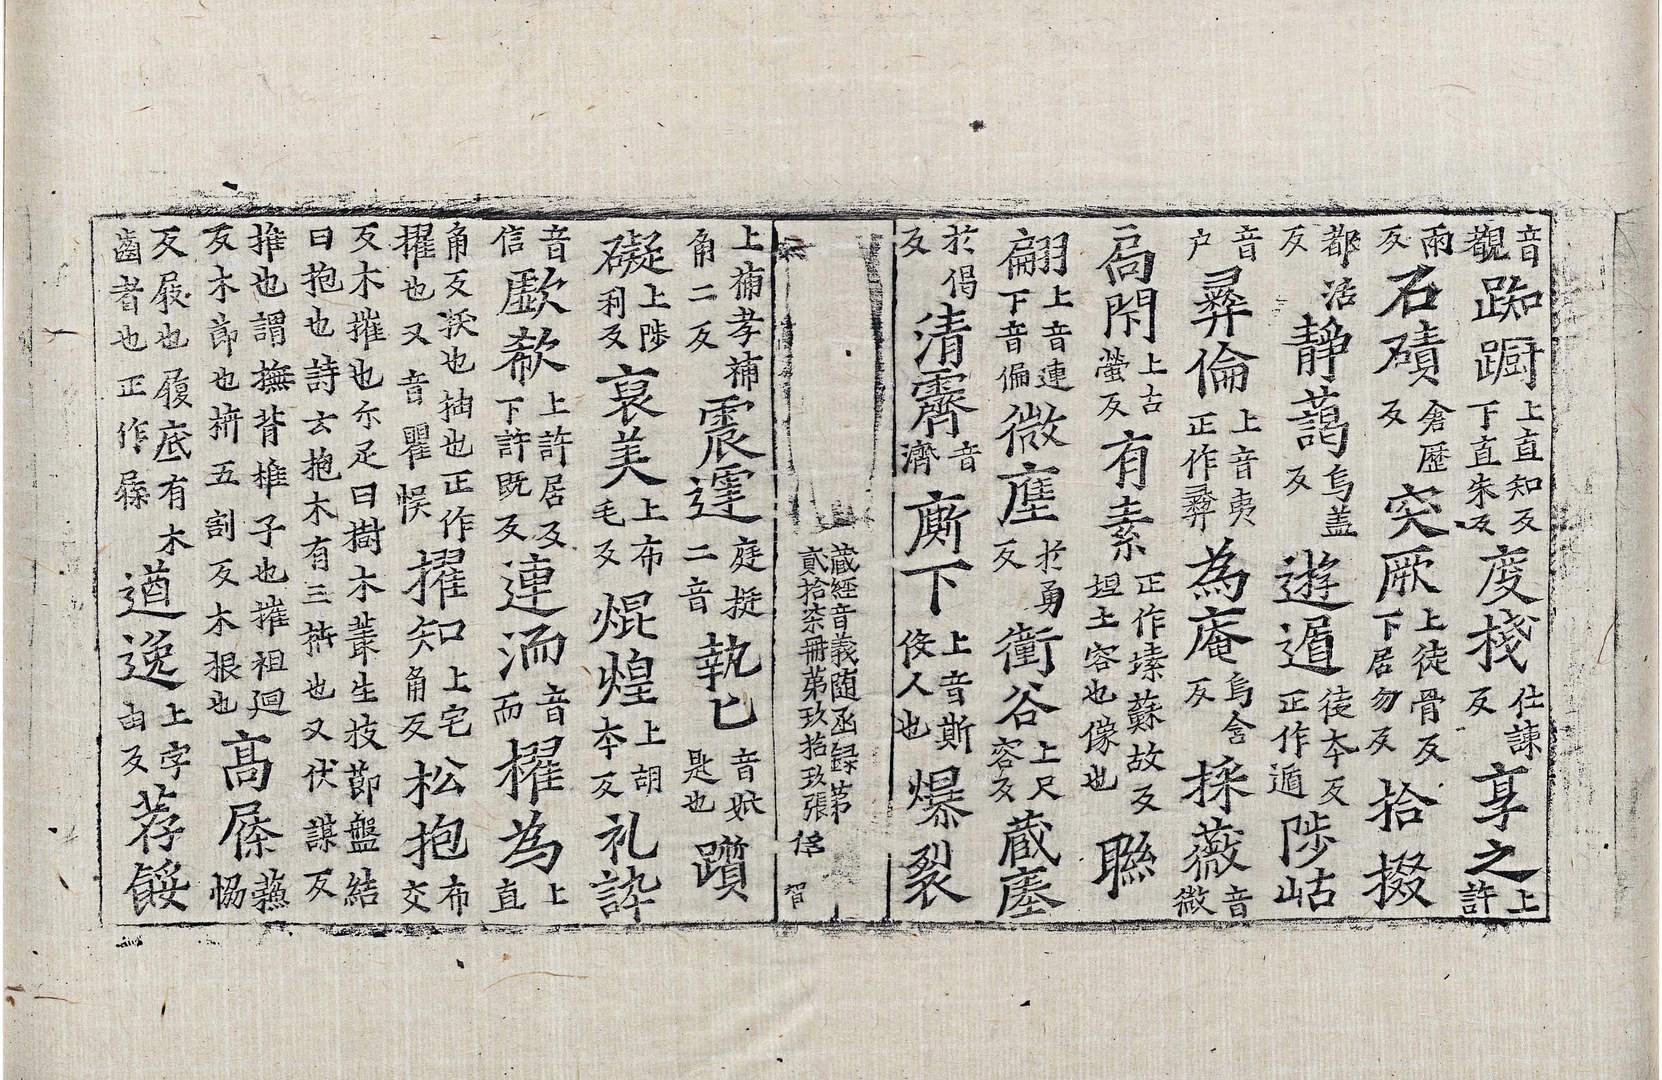 音觀踟蹰上直知反下直朱反度棧仕諫反享之上許
兩反石磧倉歷反突厥上徒骨反下居勿反拾掇
都活反靜藹烏盖反遊遁徒夲反正作遁陟岵
音户彛倫上音夷正作彛為庵烏含反採薇音微
扃閇上古螢反有素正作塐蘇故反塐土容也像也聮
翩上音連下音偏微壅扵勇反衝谷上尺容反蔵塞
扵偈反清霽音濟廝下上音斯伇人也爆裂
蔵經音義随函録第貳拾柒冊第玖拾玖張 俢 智
上補孝補角二反震霆庭挺二音執匕音妣匙也躓
礙上陟利反裒美上布毛反焜煌上胡夲反礼評
音信歔欷上許居反下許既反連洏音而擢為上直
角反㧞也抽也正作擢也又音瞿悮擢知上宅角反松抱布交
反木摧也尒疋曰樹木叢生枝莭盤結曰抱也詩云抱木有三㭊也又伏謀反
推也謂撫背椎子也摧祖迴反木莭也㭊五割反木狠也髙屧蘓協
反屐也履底有木齒者也正作屧遒逸上字由反荐餒